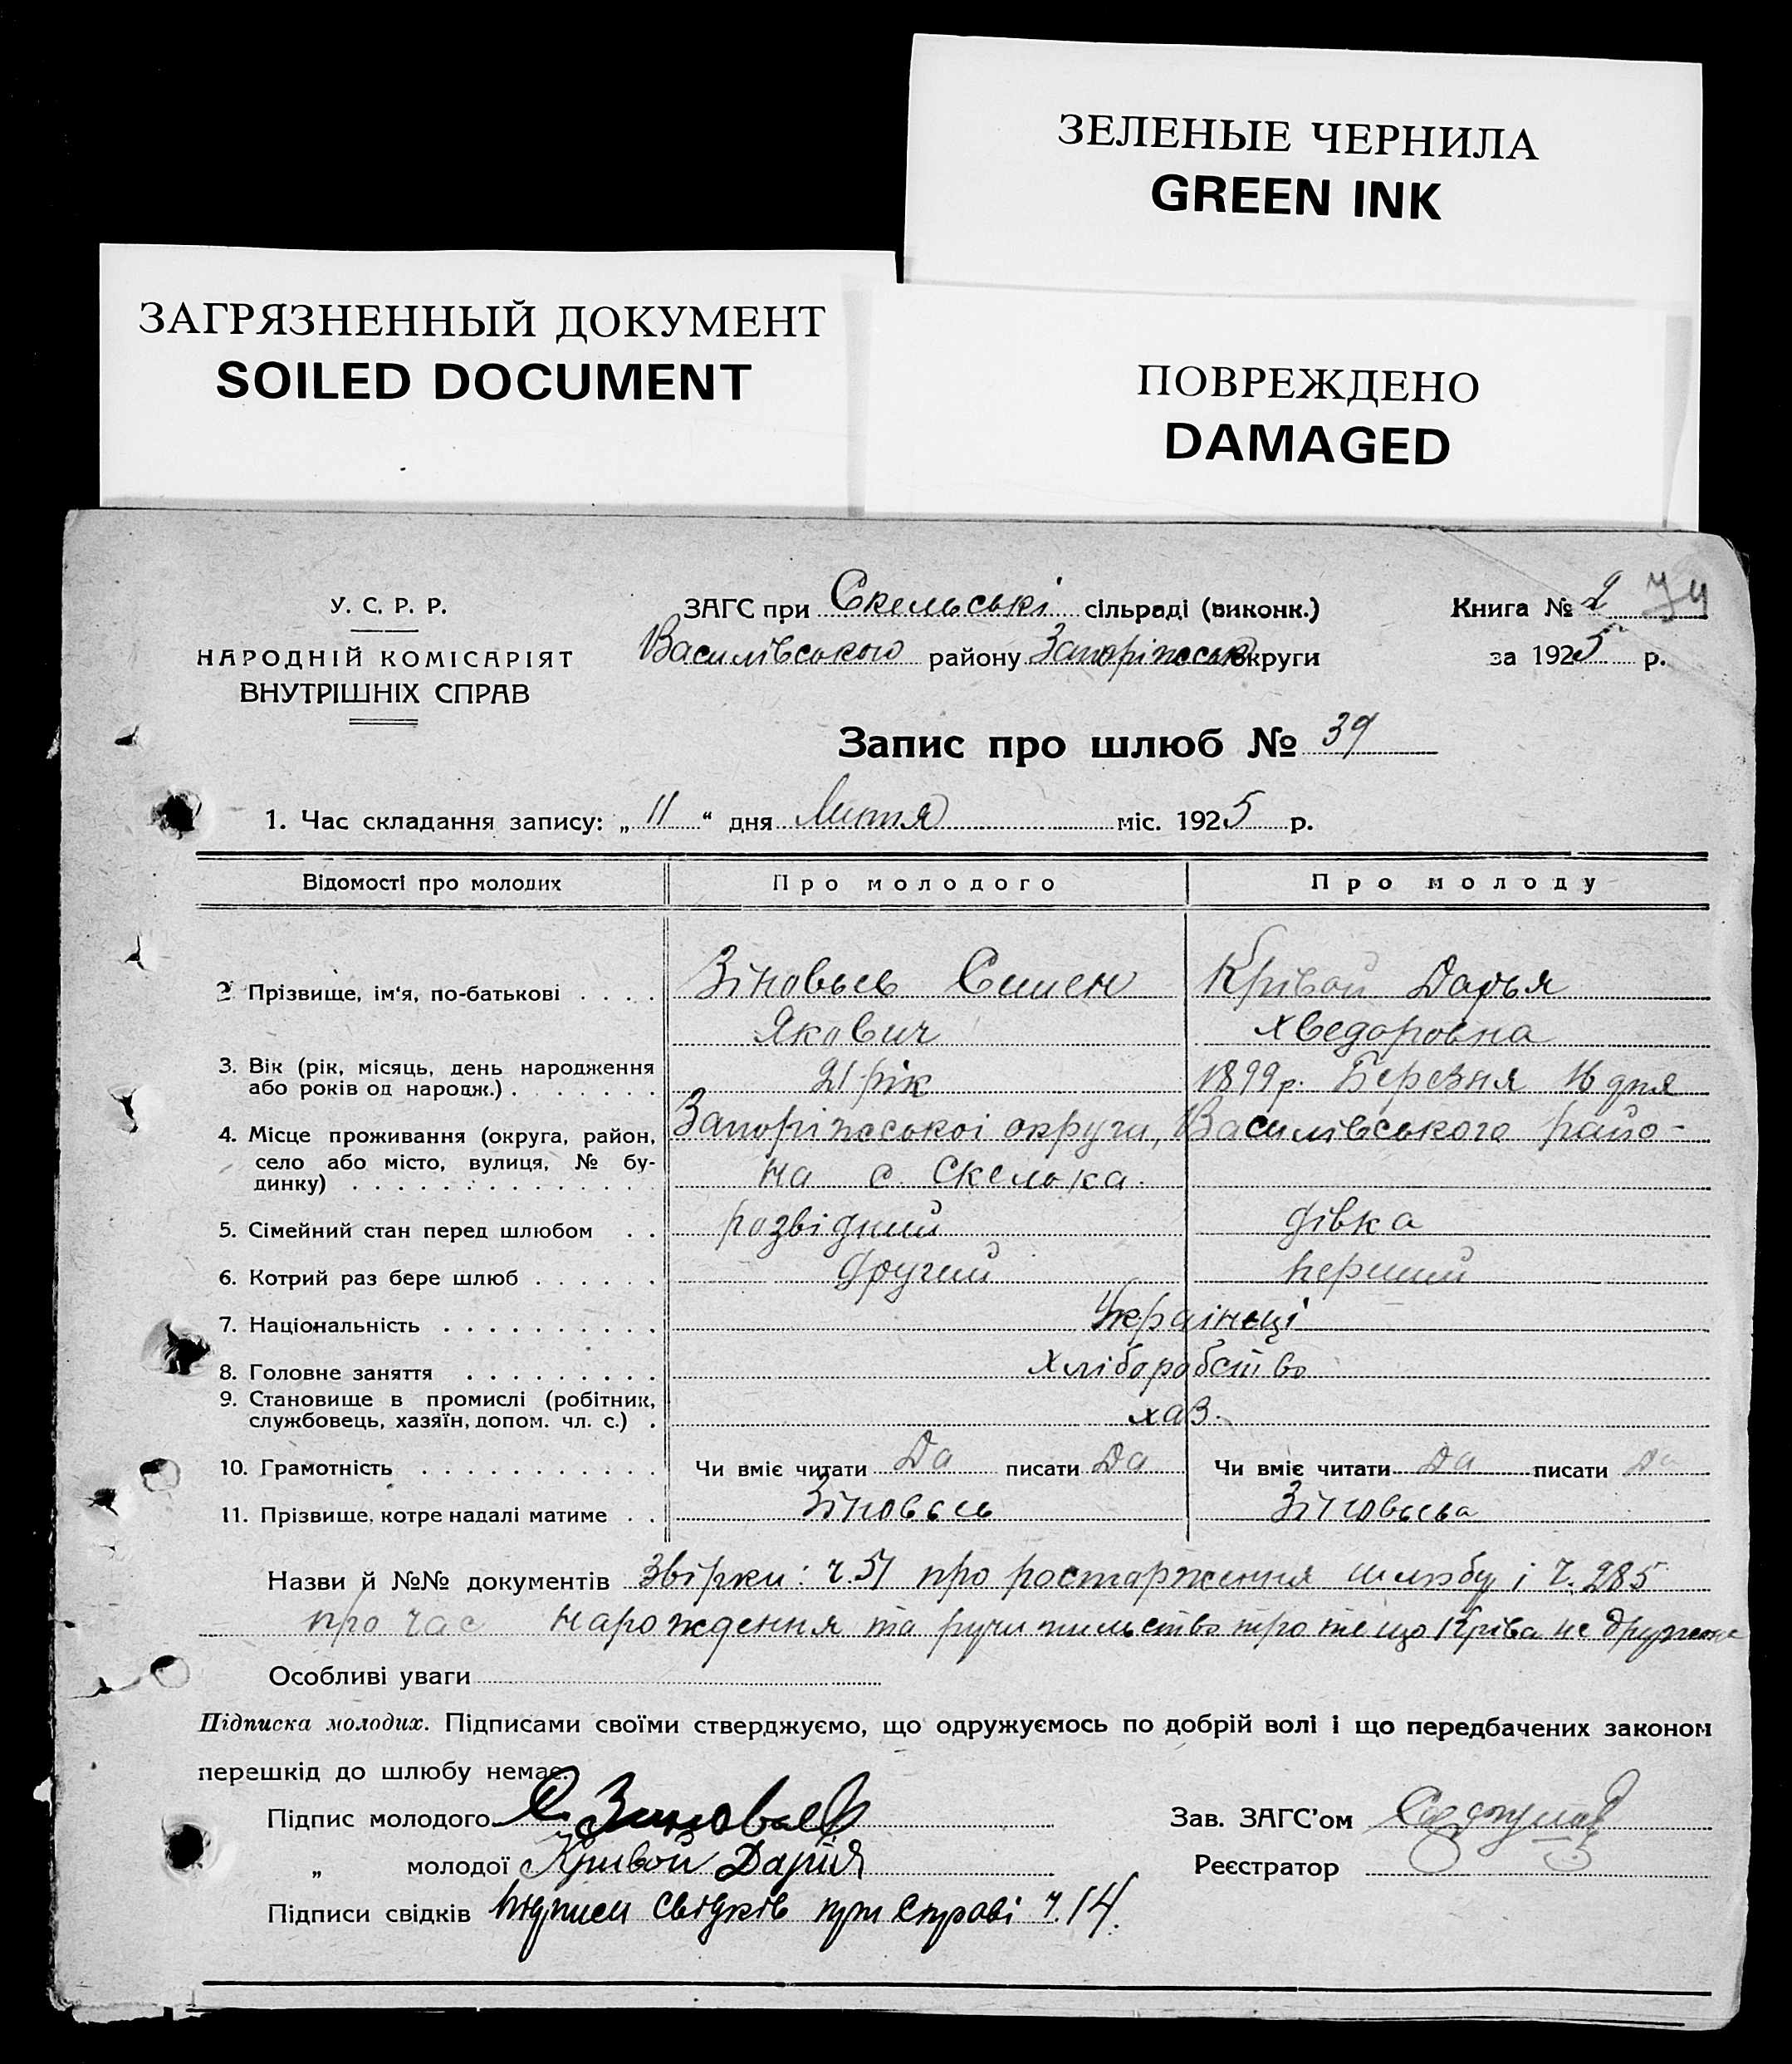 ЗЕЛЕНЫЕ ЧЕРНИЛА
GREEN INK
ЗАГРЯЗНЕННЫЙ ДОКУМЕНТ
SOILED DOCUMENT
ПОВРЕЖДЕНО
DAMAGED
У. С. Р. Р.
НАРОДНІЙ КОМІСАРІЯТ
ВНУТРІШНІХ СПРАВ
ЗАГС при Скельські сільраді (виконк.)
Василівського району Запоріжськ округи
Книга № 2 74
за 1925 р.
Запис про шлюб № 39
1. Час складання запису: „ 11 “ дня Лютня міс. 1925 р.
Відомості про молодих Про молодого Про молоду
2 Прізвище, ім'я, по-батькові . . . . Зіновьєв Семен Крівой Дарья
Якович Хведоровна
3. Вік (рік, місяць, день народження
або років од народж.) . . . . . . . 21 рік 1899 р. Березня 16 дня
4. Місце проживання (округа, район, Запоріжської округи, Василівського райо-
село або місто, вулиця, № бу-
динку) . . . . . . . . . . . . . . на с. Скелька.
5. Сімейний стан перед шлюбом . . розвідний дівка
6. Котрий раз бере шлюб . . . . . . другий перший
7. Національність . . . . . . . . . . Українці
8. Головне заняття . . . . . . . . . хліборобство
9. Становище в промислі (робітник,
службовець, хазяїн, допом. чл. с.) . хаз.
10. Грамотність . . . . . . . . . . . Чи вміє читати Да писати Да Чи вміє читати Да писати Да
11. Прізвище, котре надалі матиме . . Зіновьєв Зіновьєва
Назви й №№ документів звірки: ч. 51 про ростарження шлюбу і ч. 285
про час нарождення та ручительство про те що Кріва не дружена
Особливі уваги
Підписка молодих. Підписами своїми стверджуємо, що одружуємось по добрій волі і що передбачених законом
перешкід до шлюбу немає.
Підпис молодого С. Зиновьев Зав. ЗАГС'ом
„ молодої Кривой Дария Реєстратор
Підписи свідків підписи свідків при справі ч. 14.